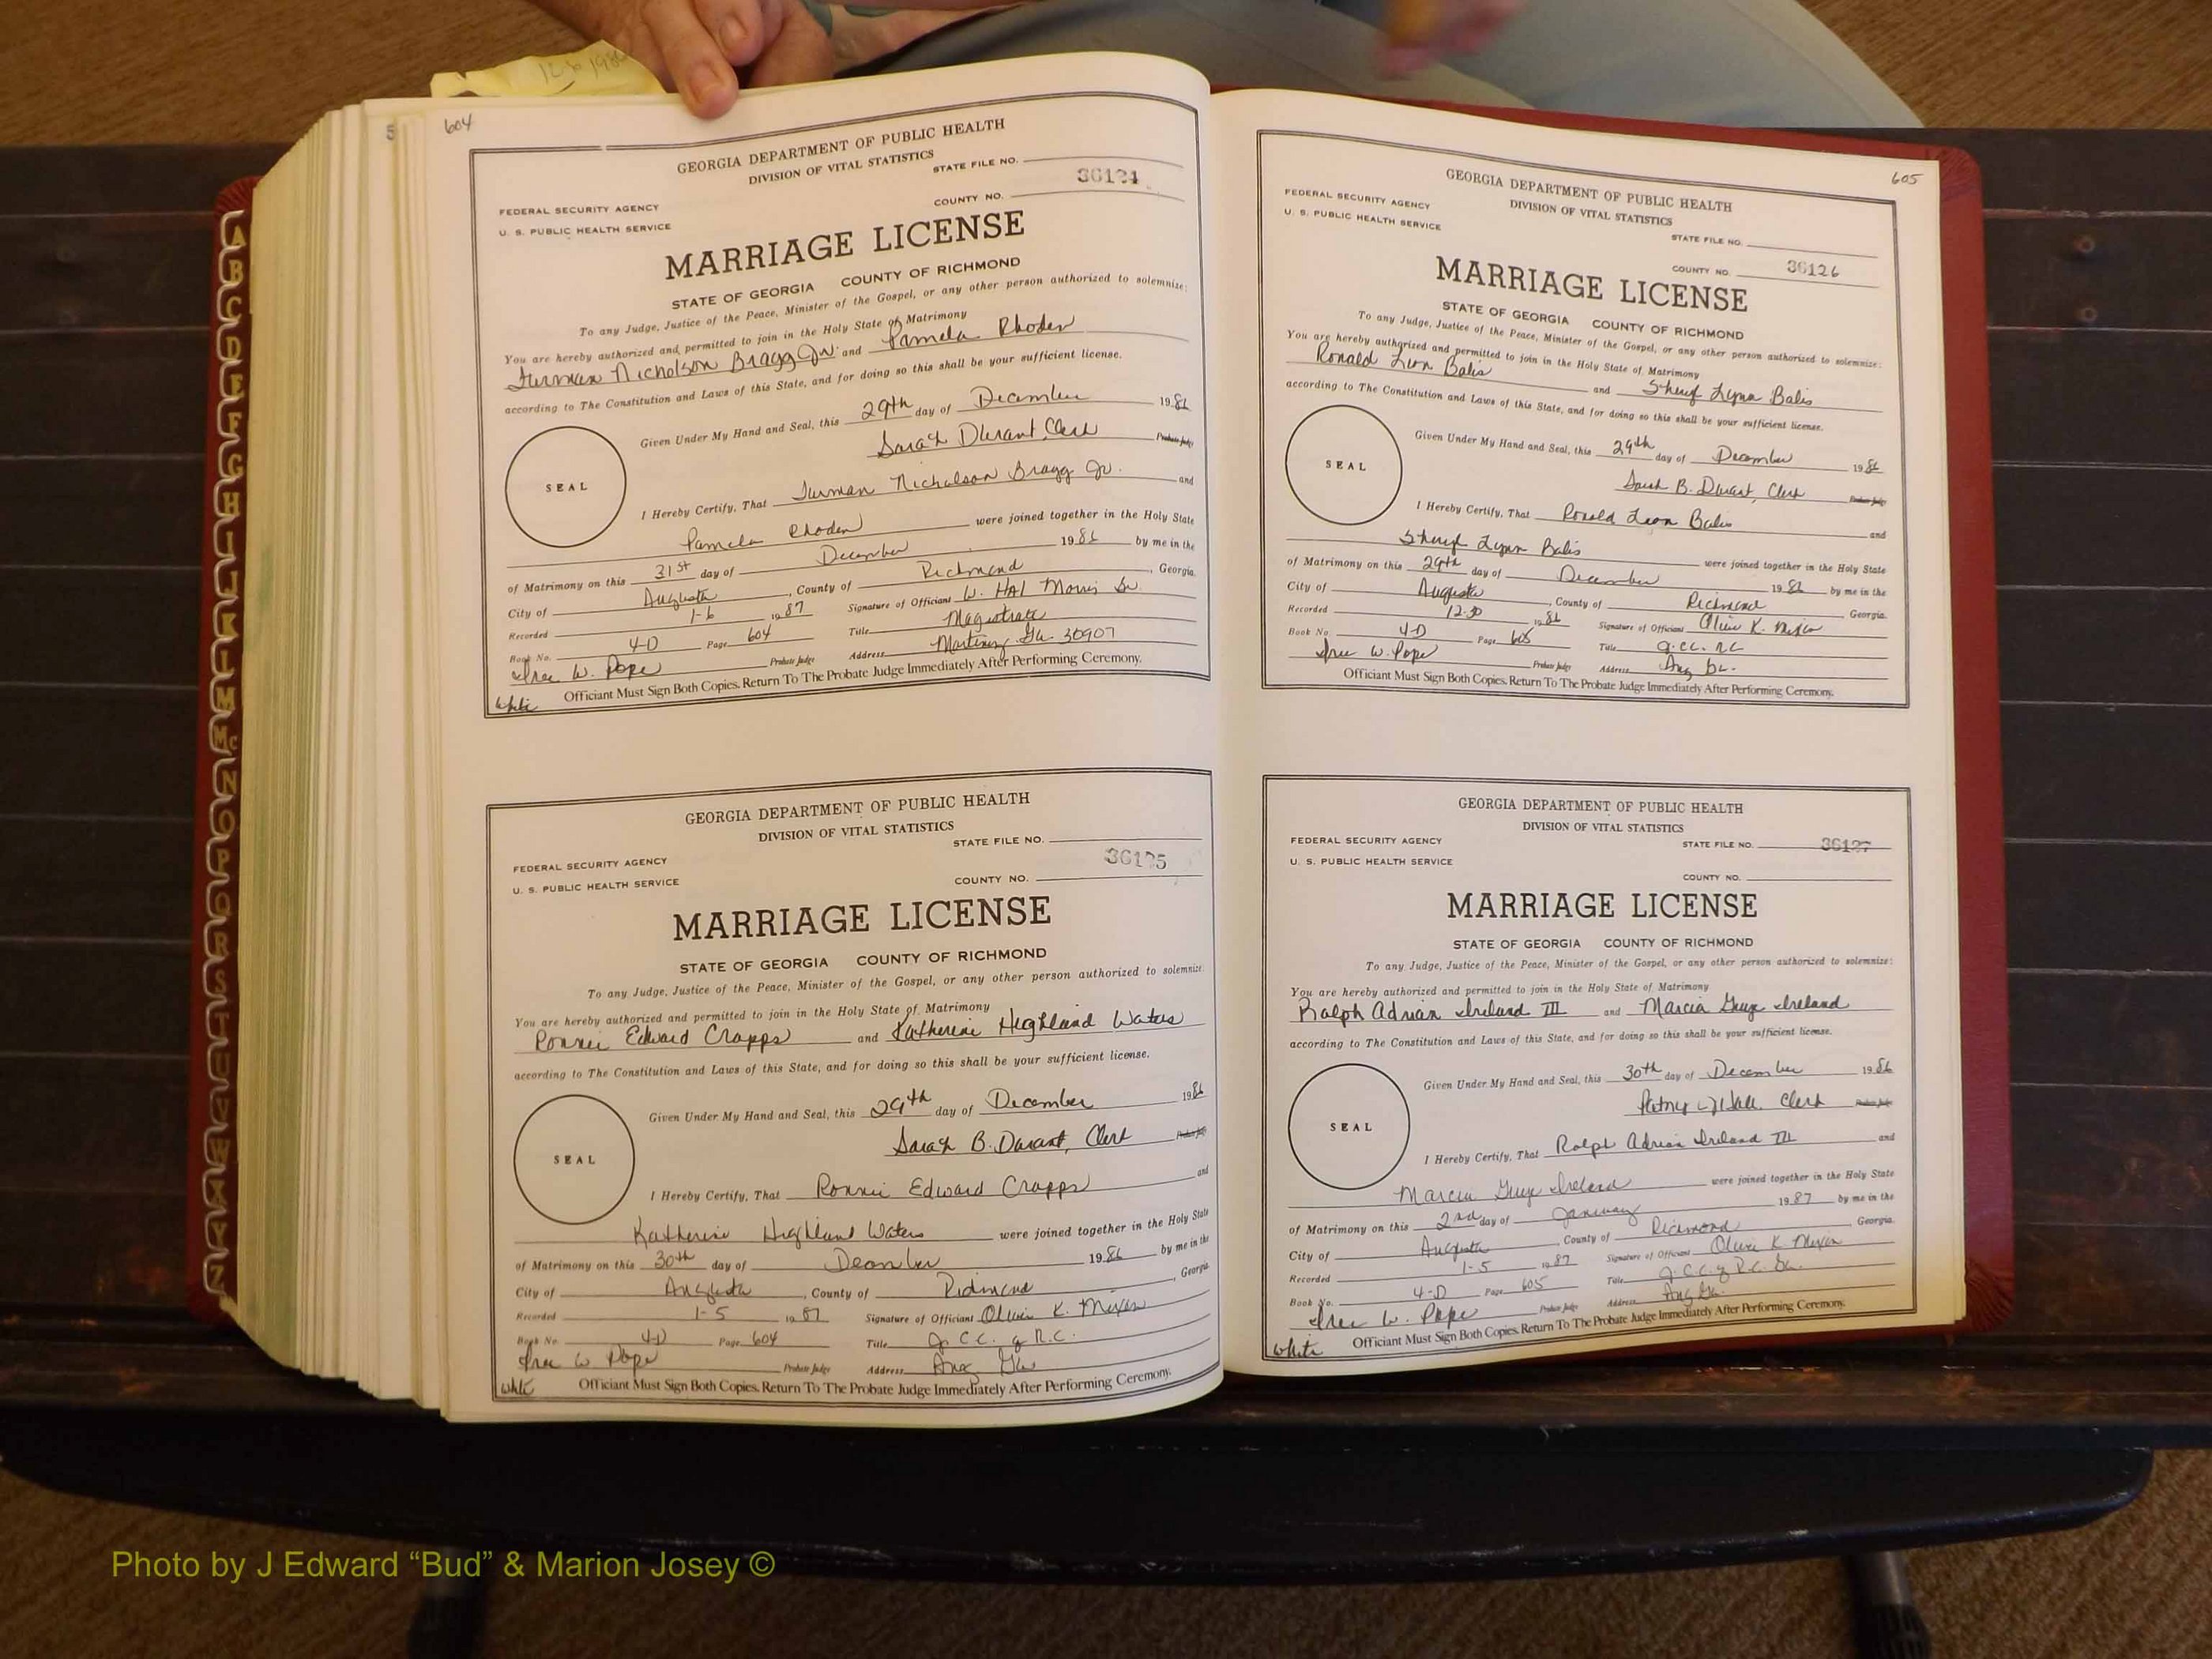 12-30 1986
5 604
GEORGIA DEPARTMENT OF PUBLIC HEALTH
DIVISION OF VITAL STATISTICS
STATE FILE NO.
36124
FEDERAL SECURITY AGENCY
COUNTY NO.
U. S. PUBLIC HEALTH SERVICE
MARRIAGE LICENSE
STATE OF GEORGIA COUNTY OF RICHMOND
To any Judge, Justice of the Peace, Minister of the Gospel, or any other person authorized to solemnize:
You are hereby authorized and permitted to join in the Holy State of Matrimony
Furman Nicholson Bragg Jr. and Pamela Rhoden
according to The Constitution and Laws of this State, and for doing so this shall be your sufficient license.
Given Under My Hand and Seal, this 29th day of December 1986
Sarah Durant, Clerk Probate Judge
SEAL
I Hereby Certify, That Furman Nicholson Bragg Jr. and
Pamela Rhoden were joined together in the Holy State
of Matrimony on this 31st day of December 1986 by me in the
City of Augusta, County of Richmond, Georgia.
Recorded 1-6 1987 Signature of Officiant W. Hal Morris Sr.
Book No. 4-D Page 604 Title Magistrate
W. Pope Probate Judge Address Martinez, Ga. 30907
White Officiant Must Sign Both Copies. Return To The Probate Judge Immediately After Performing Ceremony.
GEORGIA DEPARTMENT OF PUBLIC HEALTH
DIVISION OF VITAL STATISTICS
STATE FILE NO.
36125
FEDERAL SECURITY AGENCY
COUNTY NO.
U. S. PUBLIC HEALTH SERVICE
MARRIAGE LICENSE
STATE OF GEORGIA COUNTY OF RICHMOND
To any Judge, Justice of the Peace, Minister of the Gospel, or any other person authorized to solemnize:
You are hereby authorized and permitted to join in the Holy State of Matrimony
Ronnie Edward Crapps and Katherine Highland Waters
according to The Constitution and Laws of this State, and for doing so this shall be your sufficient license.
Given Under My Hand and Seal, this 29th day of December 1986
Sarah B. Durant, Clerk Probate Judge
SEAL
I Hereby Certify, That Ronnie Edward Crapps and
Katherine Highland Waters were joined together in the Holy State
of Matrimony on this 30th day of December 1986 by me in the
City of Augusta, County of Richmond, Georgia
Recorded 1-5 1987 Signature of Officiant Olivia K. Mixon
Book No. 4-D Page 604 Title J. C.C. of R.C.
W Pope Probate Judge Address Aug Ga
White Officiant Must Sign Both Copies. Return To The Probate Judge Immediately After Performing Ceremony.
605
GEORGIA DEPARTMENT OF PUBLIC HEALTH
DIVISION OF VITAL STATISTICS
FEDERAL SECURITY AGENCY
U. S. PUBLIC HEALTH SERVICE
STATE FILE NO.
COUNTY NO. 36126
MARRIAGE LICENSE
STATE OF GEORGIA COUNTY OF RICHMOND
To any Judge, Justice of the Peace, Minister of the Gospel, or any other person authorized to solemnize:
You are hereby authorized and permitted to join in the Holy State of Matrimony
Ronald Leon Balis and Sheryl Lynn Balis
according to The Constitution and Laws of this State, and for doing so this shall be your sufficient license.
Given Under My Hand and Seal, this 29th day of December 1986
Sarah B. Durant, Clerk Probate Judge
SEAL
I Hereby Certify, That Ronald Leon Balis and
Sheryl Lynn Balis were joined together in the Holy State
of Matrimony on this 29th day of December 1986 by me in the
City of Augusta, County of Richmond Georgia.
Recorded 12-30 1986 Signature of Officiant Olivia K. Mixon
Book No. 4-D Page 605 Title J.C.C. R.C
W. Pope Probate Judge Address Aug Ga.
Officiant Must Sign Both Copies. Return To The Probate Judge Immediately After Performing Ceremony.
GEORGIA DEPARTMENT OF PUBLIC HEALTH
DIVISION OF VITAL STATISTICS
FEDERAL SECURITY AGENCY
STATE FILE NO. 36127
U. S. PUBLIC HEALTH SERVICE
COUNTY NO.
MARRIAGE LICENSE
STATE OF GEORGIA COUNTY OF RICHMOND
To any Judge, Justice of the Peace, Minister of the Gospel, or any other person authorized to solemnize:
You are hereby authorized and permitted to join in the Holy State of Matrimony
Ralph Adrian Ireland III and Marcia Guye Ireland
according to The Constitution and Laws of this State, and for doing so this shall be your sufficient license.
Given Under My Hand and Seal, this 30th day of December 1986
Clerk Probate Judge
SEAL
I Hereby Certify, That Ralph Adrian Ireland III and
Marcia Guye Ireland were joined together in the Holy State
of Matrimony on this 2nd day of January 1987 by me in the
City of Augusta, County of Richmond Georgia.
Recorded 1-5 1987 Signature of Officiant Olivia K. Mixon
Book No. 4-D Page 605 Title J.C.C. of R.C. Ga.
W. Pope Probate Judge Address Aug Ga.
White Officiant Must Sign Both Copies. Return To The Probate Judge Immediately After Performing Ceremony.
A
B
C
D
E
F
G
H
I
J
K
L
M
Mc
N
O
P
Q
R
S
T
U
V
W
X
Y
Z
Photo by J Edward “Bud” & Marion Josey ©